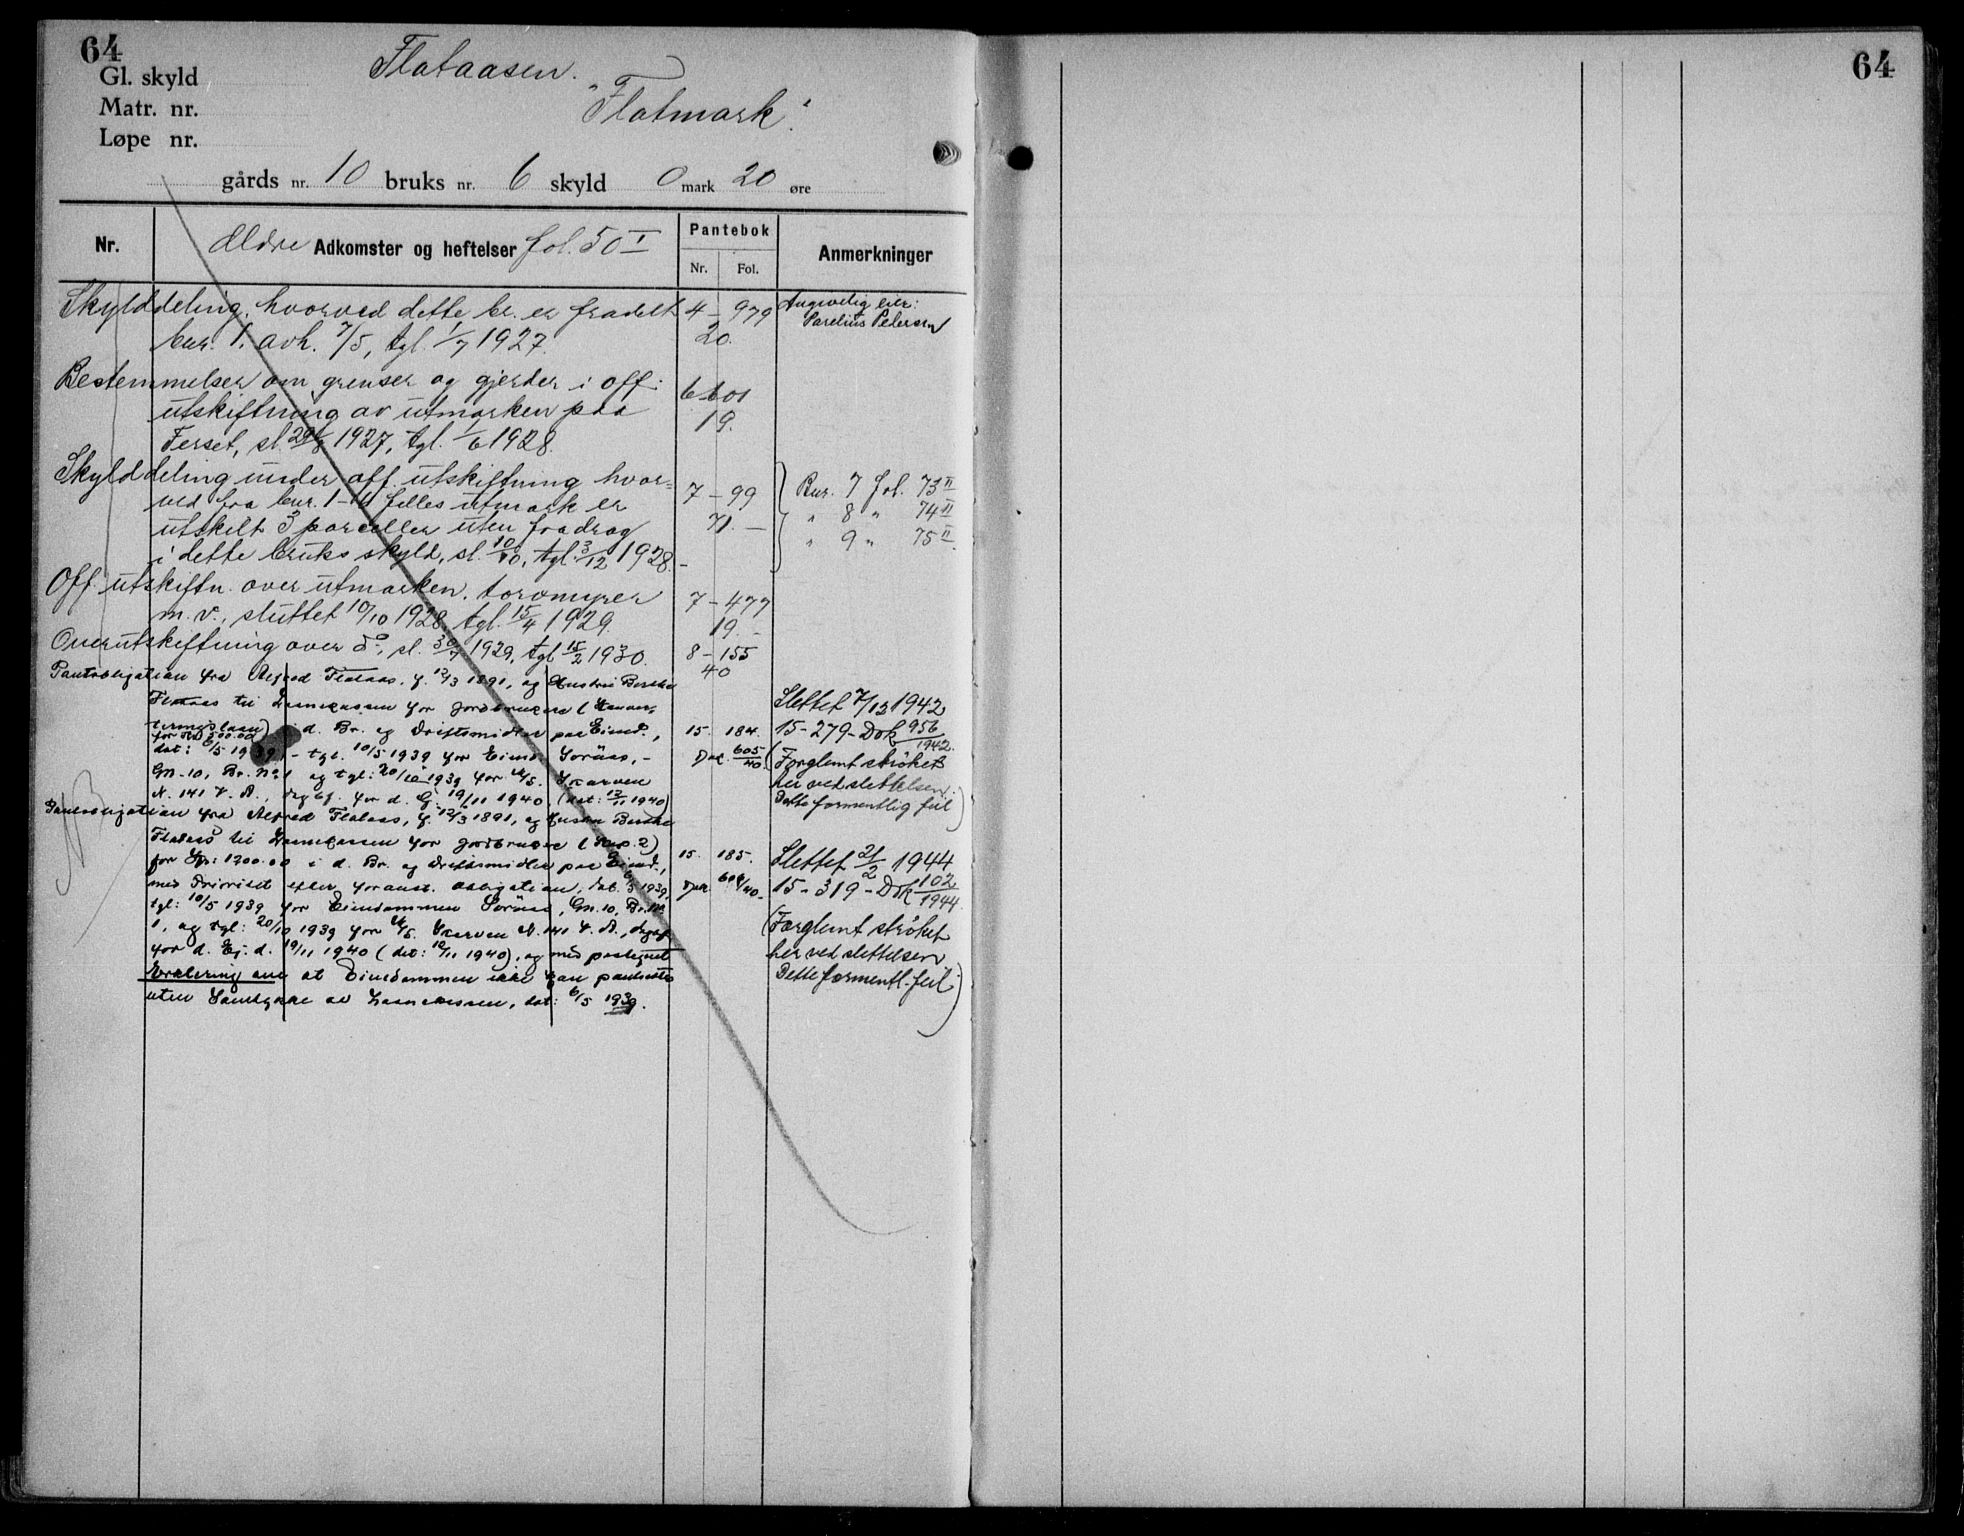 64
Gl. skyld
Matr. nr.
Løpe nr.
Flataasen.
"Flatmark".
gårds nr. 10 bruks nr. 6 skyld 0 mark 20 øre
Nr.
Ældre Adkomster og heftelser fol. 50 I
Pantebok
Nr. Fol.
Anmerkninger
Skylddeling, hvorved dette br. er fradelt 4 – 979
bnr. 1, avh. 7/5, tgl. 1/7 1927. 20.
Angivelig eier:
Sarelius Petersen
Bestemmelser om grenser og gjerder i off. 6 601
utskiftning av utmarken paa 19.
Ferset, sl. 29/8 1927, tgl. 1/6 1928.
Skylddeling under off. utskiftning hvor- 7 – 99
ved fra bnr. 1 – fælles utmark er 71. –
utskilt 3 parceller uten fradrag
i dette bruks skyld, sl. 10/10, tgl. 3/12 1928. –
Bnr. 7 fol. 73 II
" 8 " 74 II
" 9 " 75 II.
Off. utskiftn. over utmarken, torvmyrer 7 – 477
m. v., sluttet 10/10 1928, tgl. 15/4 1929. 19. –
Overutskiftning over do, sl. 30/7 1929, tgl 15/2 1930. 8 – 155
40
Pantobligation fra Alfred Flataas, f. 12/3 1891, og Hustru
Flataas til Laanekassen for Jordbrukere
for Kr. 500.00 i d. Br. og Driftsmidler paa Eiend., 15. 184.
dat: 6/5 1939, – tgl. 10/5 1939 for Eiend. Soråas, – Dok. 605/40.
Gn. 10, Br. No 1 og tgl: 20/10 1939 for M/S. Skarven
N. 141 V. A., dagbf. for d. Ej. 19/11 1940 (dat: 12/11 1940)
Slettet 7/12 1942
15 – 279 – Dok 956/1942.
(Forglemt strøket
her ved slettelsen.
Dette formentlig feil)
NB
Pantobligation fra Alfred Flataas, f. 12/3 1891, og Hustru
Flataas til Laanekassen for Jordbrukere (Kap. 2)
for Kr: 1200.00 i d. Br. og Driftsmidler paa Eiend., 15. 185.
med Prioritet efter foranst. Obligation, dat. 6/5 1939, Dok. 606/40.
tgl: 10/5 1939 for Eiendommen Soråas, Gn. 10, Br. No
1, og tgl: 20/10 1939 for M/S. Skarven N. 141 V. A., dagbf
for d. Ej. d. 19/11 1940 (dat: 12/11 1940), og med paategnet
Erklæring om at Eiendommen ikke kan pantsettes
uten Samtykke av Laanekassen, dat: 6/5 1939.
Slettet 21/2 1944
15 – 319 – Dok 102/1944.
(Forglemt strøket
her ved slettelsen
Dette formentl. feil)
64